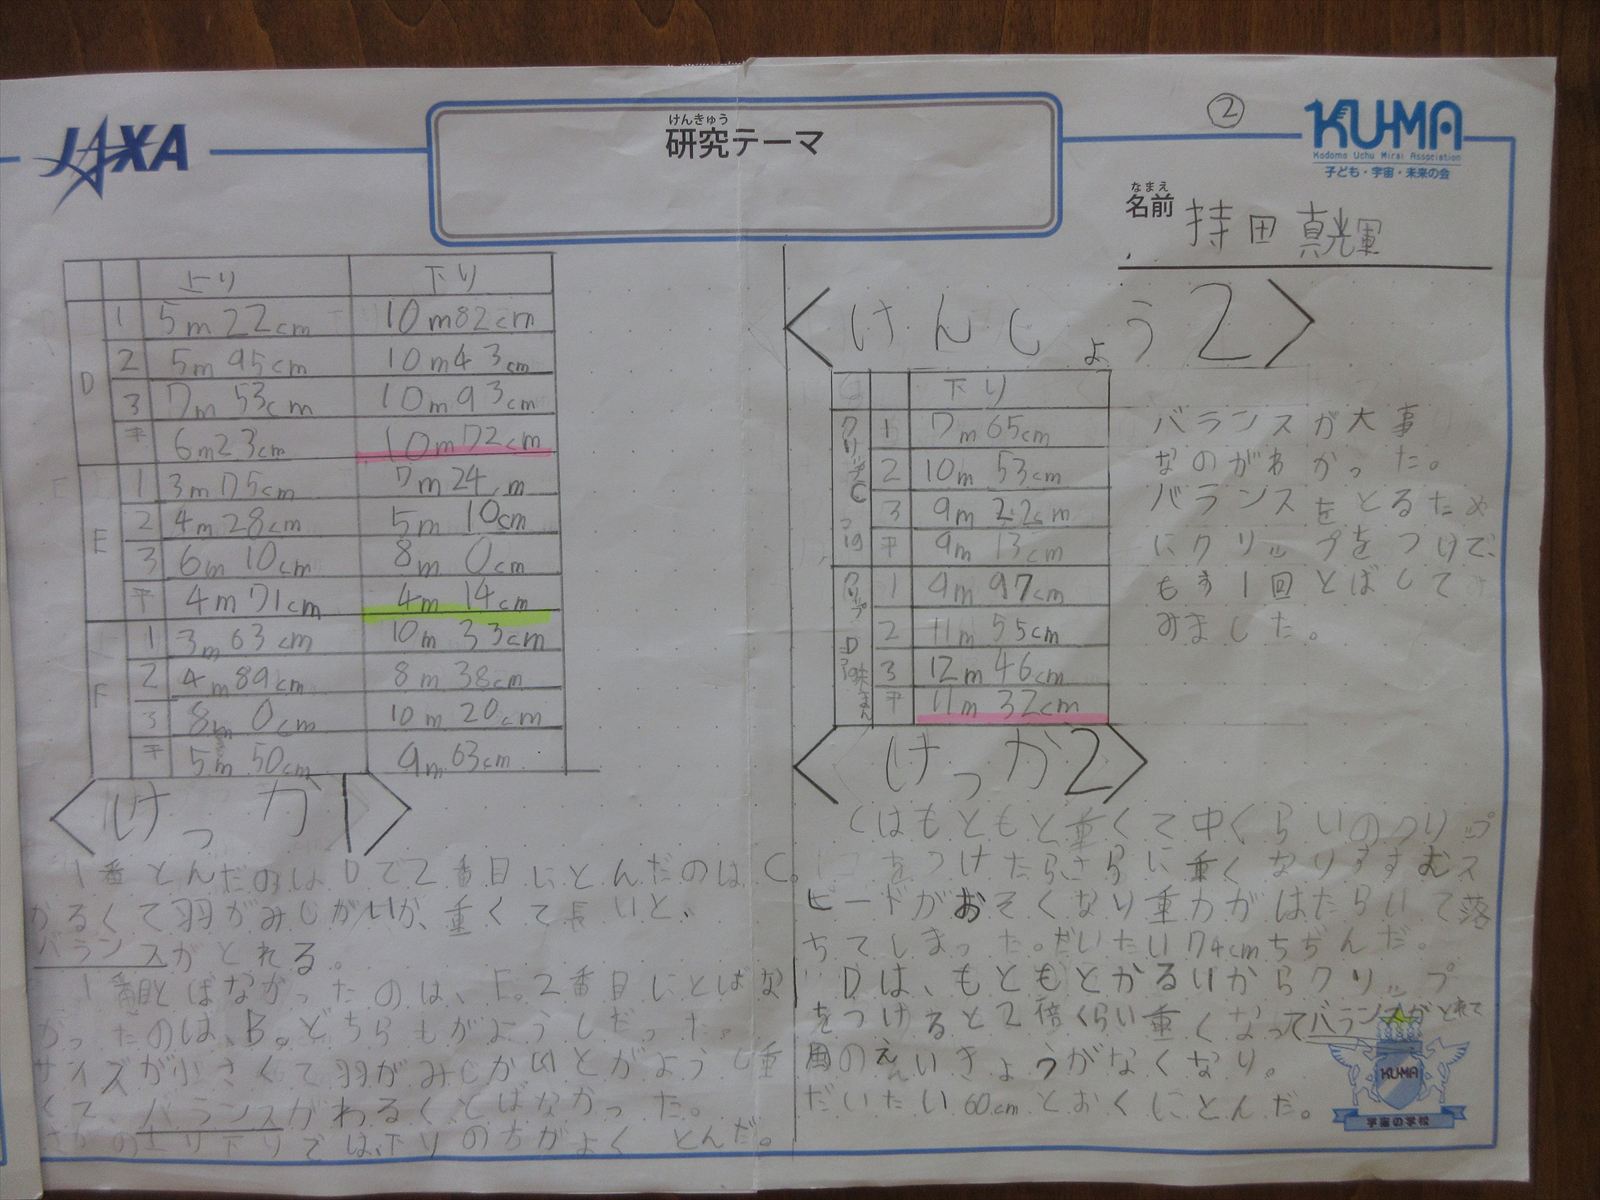 JAXA
けんきゅう
研究テーマ
②
KUMA
Kodomo Uchu Mirai Association
子ども・宇宙・未来の会
なまえ
名前 持田 真輝
上り 下り
D 1 5m22cm 10m82cm
2 5m95cm 10m43cm
3 7m53cm 10m93cm
平 6m23cm 10m72cm
E 1 3m75cm 7m24cm
2 4m28cm 5m10cm
3 6m10cm 8m0cm
平 4m71cm 4m14cm
F 1 3m63cm 10m33cm
2 4m89cm 8m38cm
3 8m0cm 10m20cm
平 5m50cm 9m63cm
<けっか1>
1番とんだのはDで2番目にとんだのはC。
かるくて羽がみじかいか、重くて長いと、
バランスがとれる。
1番目とばなかったのは、E。2番目にとばな
かったのは、B。どちらもがようしだった。
サイズが小さくて羽がみじかいとがようし重
くて、バランスがわるくとばなかった。
の上り下りでは、下りの方がよくとんだ。
<けんしょう2>
下り
クリップC 1 7m65cm
2 10m53cm
3 9m22cm
平 9m13cm
クリップD 1 9m97cm
2 11m55cm
3 12m46cm
平 11m32cm
バランスが大事
なのがわかった。
バランスをとるため
にクリップをつけて、
もう1回とばして
みました。
<けっか2>
Cはもともと重くて中くらいのクリップ
をつけたらさらに重くなりすすむス
ピードがおそくなり重力がはたらいて落
ちてしまった。だいたい74cmちぢんだ。
Dは、もともとかるいからクリップ
をつけると2倍くらい重くなってバランスがとれて
風のえいきょうがなくなり。
だいたい60cmとおくにとんだ。
KUMA
宇宙の学校